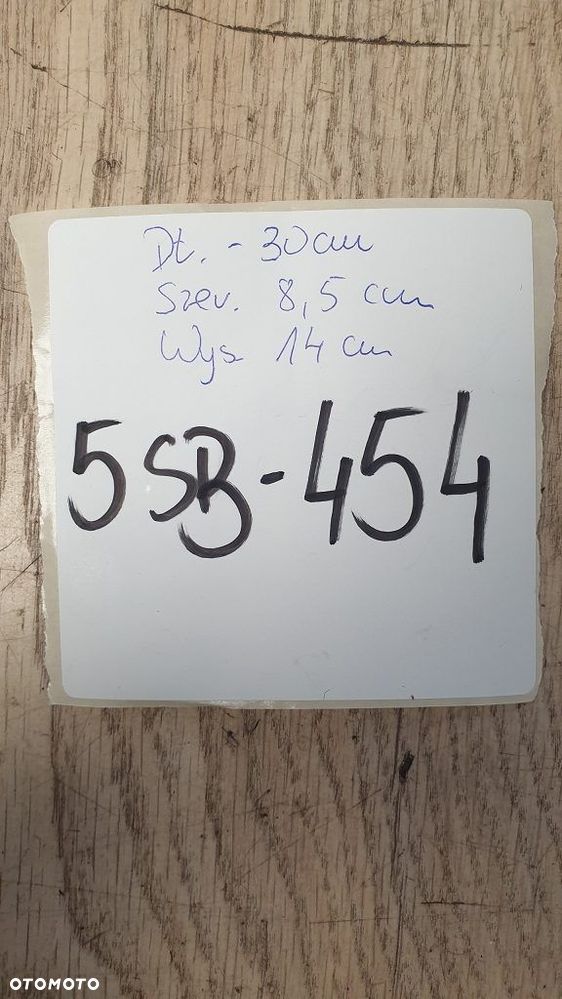 Dł. - 30 cm
Szer. 8,5 cm
Wys 14 cm
5SB-454
OTOMOTO